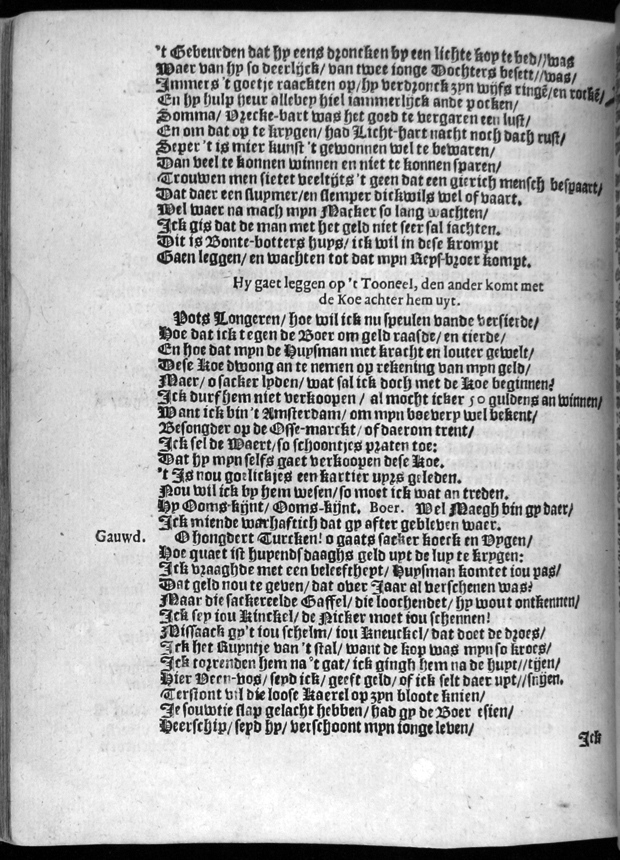 't Gebeurden dat hy eens droncken by een lichte kop te bed//was
Waer van hy so deerlijck/ van twee ionge Dochters besett//was/
Immers 't goetje raackten op/ hy verdronck zyn wijfs ringē/ en rockē/
En hy hulp heur allebey hiel iammerlijck ande pocken/
Somma/ Vrecke-bart was het goed te vergaren een lust/
En om dat op te krygen/ had Licht-hart nacht noch dach rust/
Seper 't is mier kunst 't gewonnen wel te bewaren/
Dan veel te konnen winnen en niet te konnen sparen/
Trouwen men sietet veeltijts 't geen dat een gierich mensch bespaart/
Dat daer een sluymer/ en slemper dickwils wel of vaart.
Wel waer na mach myn Macker so lang wachten/
Ick gis dat de man met het geld niet seer sal iachten.
Dit is Bonte-botters huys/ ick wil in dese krompt
Gaen leggen/ en wachten tot dat myn Reys-broer kompt.
Hy gaet leggen op 't Tooneel, den ander komt met
de Koe achter hem uyt.
Pots Longeren/ hoe wil ick nu speulen vande versierde/
Hoe dat ick tegen de Boer om geld raasde/ en tierde/
En hoe dat myn de Huysman met kracht en louter gewelt/
Dese Koe dwong an te nemen op rekening van myn geld/
Maer/ o sacker lyden/ wat sal ick doch met de Koe beginnen?
Ick durf hem niet verkoopen/ al mocht icker 50 guldens an winnen/
Want ick bin 't Amsterdam/ om myn boevery wel bekent/
Besongder op de Osse-marckt/ of daerom trent/
Ick sel de Waert/ so schoontjes praten toe:
Dat hy myn selfs gaet verkoopen dese Koe.
't Is nou goelickjes een kartier uyrs geleden.
Nou wil ick by hem wesen/ so moet ick wat an treden.
Hy Ooms-kijnt/ Ooms-kijnt. Boer. Wel Maegh bin gy daer/
Ick miende warhaftich dat gy after gebleven waer.
Gauwd. O hongdert Turcken! o gaats sacker koeck en Vygen/
Hoe quaet ist huydensdaaghs geld uyt de luy te krygen:
Ick vraaghde met een beleeftheyt/ Huysman komtet iou pas/
Dat geld nou te geven/ dat over Jaar al verschenen was?
Maar die sackereelde Gaffel/ die loochendet/ hy wout ontkennen/
Ick sey iou Kinckel/ de Nicker moet iou schennen!
Missaack gy't iou schelm/ iou Kneuckel/ dat doet de droes/
Ick het Kuyntje van 't stal/ want de kop was myn so kroes/
Ick torrenden hem na 't gat/ ick gingh hem na de huyt//tyen/
Hier Veen-vos/ seyd ick/ geeft geld/ of ick selt daer uyt//snyen.
Terstont vil die loose Kaerel op zyn bloote knien/
Je souwtie slap gelacht hebben/ had gy de Boer esien/
Heerschip/ seyd hy/ verschoont myn ionge leven/
Ick